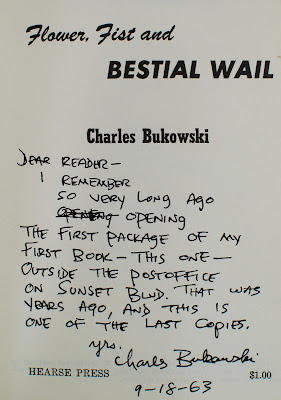 Flower, Fist and
BESTIAL WAIL
Charles Bukowski
DEAR READER—
I REMEMBER
SO VERY LONG AGO
OPENING OPENING
THE FIRST PACKAGE OF MY
FIRST BOOK — THIS ONE —
OUTSIDE THE POSTOFFICE
ON SUNSET BLVD. THAT WAS
YEARS AGO, AND THIS IS
ONE OF THE LAST COPIES.
yrs.
Charles Bukowski
HEARSE PRESS $1.00
9-18-63